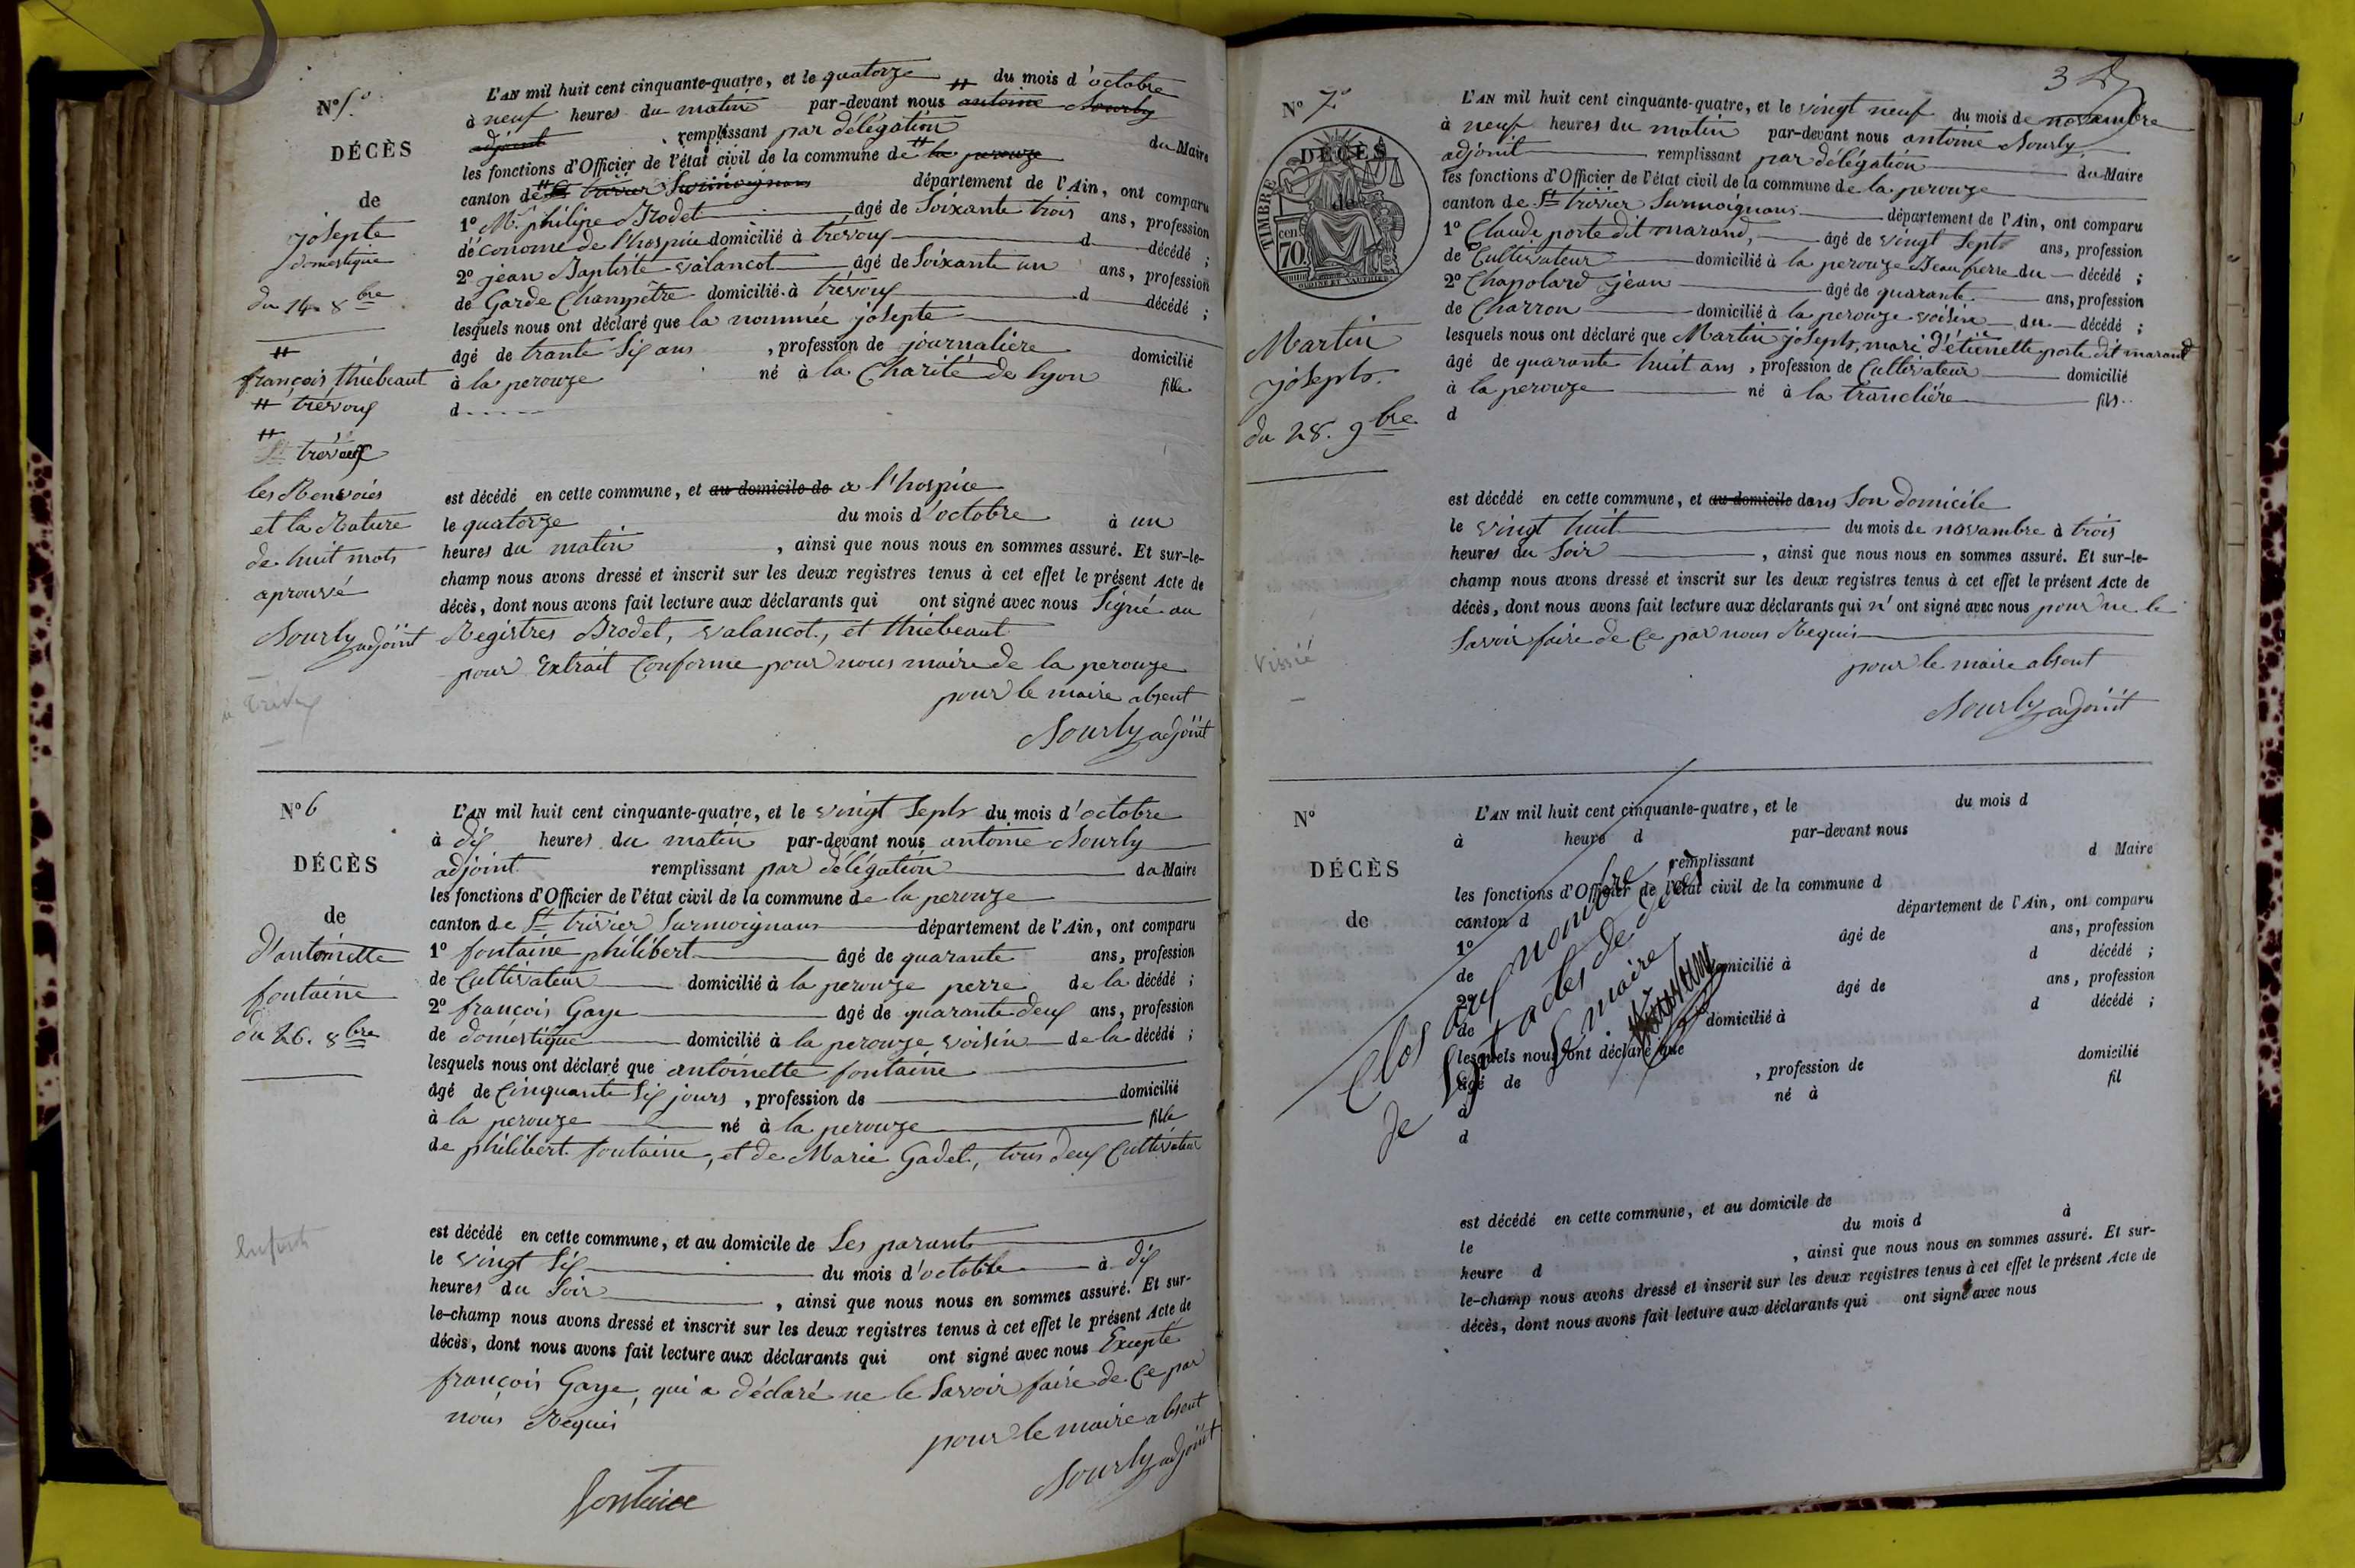 N° 5°
DÉCÈS
de
josepte
domestique
du 14 8bre
#
françois thiebeaut
# trévoux
#
trévoux
les Renvoies
et la Rature
de huit mots
aprouvé
Sourly adjoint
L'AN mil huit cent cinquante-quatre, et le quatorze # du mois d'octobre
à neuf heures du matin par-devant nous antoine Sourly
adjoint, remplissant par délégation du Maire
les fonctions d'Officier de l'état civil de la commune de # la perouze
canton de # St trivier Surmoignans département de l'Ain, ont comparu
1° Mr philipe Brodet âgé de Soixante trois ans, profession
d'économe de l'hospice domicilié à trévoux d décédé ;
2° jean Baptiste valancot âgé de Soixante un ans, profession
de Garde Champêtre domicilié à trévoux d décédé ;
lesquels nous ont déclaré que la nommée josepte
âgé de trante Six ans, profession de journalière domicilié
à la perouze né à la Charité de lyon fille
d
est décédé en cette commune, et au domicile de a l'hospice
le quatorze du mois d'octobre à un
heures du matin, ainsi que nous nous en sommes assuré. Et sur-le-
champ nous avons dressé et inscrit sur les deux registres tenus à cet effet le présent Acte de
décès, dont nous avons fait lecture aux déclarants qui ont signé avec nous Signé au
Registres Brodet, valancot, et thiebeaut
pour Extrait Conforme pour nous maire de la perouze
pour le maire absent
Sourly adjoint
N° 6
DÉCÈS
de
D'antoinette
fontaine
du 26. 8bre
L'AN mil huit cent cinquante-quatre, et le vingt Septs du mois d'octobre
à dix heures du matin par-devant nous antoine Sourly
adjoint remplissant par délégation du Maire
les fonctions d'Officier de l'état civil de la commune de la perouze
canton de St trivier Surmoignans département de l'Ain, ont comparu
1° fontaine philibert âgé de quarante ans, profession
de Cultivateur domicilié à la perouze perre de la décédé ;
2° françois Gaye âgé de quarante deux ans, profession
de doméstique domicilié à la perouze voisin de la décédé ;
lesquels nous ont déclaré que antoinette fontaine
âgé de Cinquante Six jours, profession de domicilié
à la perouze né à la perouze fille
de philibert fontaine, et de Marie Gadet, tous deux Cultivateur
est décédé en cette commune, et au domicile de Ses parants
le vingt Six du mois d'octobre à dix
heures du Soir, ainsi que nous nous en sommes assuré. Et sur-
le-champ nous avons dressé et inscrit sur les deux registres tenus à cet effet le présent Acte de
décès, dont nous avons fait lecture aux déclarants qui ont signé avec nous Excepté
françois Gaye, qui a déclaré ne le Savoir faire de Ce par
nous Requis
pour le maire absent
Sourly adjoint
fontaine
N° 7°
DÉCÈS
de
TIMBRE
70
cen.
Martin
josepts.
du 28. 9bre
L'AN mil huit cent cinquante-quatre, et le vingt neuf du mois de novambre
à neuf heures du matin par-devant nous antoine Sourly
adjonit remplissant par délégation du Maire
les fonctions d'Officier de l'état civil de la commune de la perouze
canton de St trivier Surmoignans département de l'Ain, ont comparu
1° Claude porte dit marand, âgé de vingt Septs ans, profession
de Cultivateur domicilié à la perouze Beau frerre du décédé ;
2° Chapolard jean âgé de quarante ans, profession
de Charron domicilié à la perouze voisin du décédé ;
lesquels nous ont déclaré que Martin josepts, mari d'étiénette porte dit marand
âgé de quarante huit ans, profession de Cultivateur domicilié
à la perouze né à la tranclière fils
d
est décédé en cette commune, et au domicile dans Son domicile
le vingt huit du mois de novambre à trois
heures du Soir, ainsi que nous nous en sommes assuré. Et sur-le-
champ nous avons dressé et inscrit sur les deux registres tenus à cet effet le présent Acte de
décès, dont nous avons fait lecture aux déclarants qui n'ont signé avec nous pour ne le
Savoir faire de Ce par nous Requis
pour le maire absent
Sourly adjoint
N°
DÉCÈS
de
L'AN mil huit cent cinquante-quatre, et le du mois d
à heure d par-devant nous
remplissant d Maire
les fonctions d'Officier de l'état civil de la commune d
canton d département de l'Ain, ont comparu
1° âgé de ans, profession
de domicilié à d décédé ;
2° âgé de ans, profession
de domicilié à d décédé ;
lesquels nous ont déclaré que
âgé de, profession de domicilié
à né à fil
d
Clos aux nombre
de Sept actes de décès
Le maire
est décédé en cette commune, et au domicile de
le du mois d à
heure d, ainsi que nous nous en sommes assuré. Et sur-
le-champ nous avons dressé et inscrit sur les deux registres tenus à cet effet le présent Acte de
décès, dont nous avons fait lecture aux déclarants qui ont signé avec nous